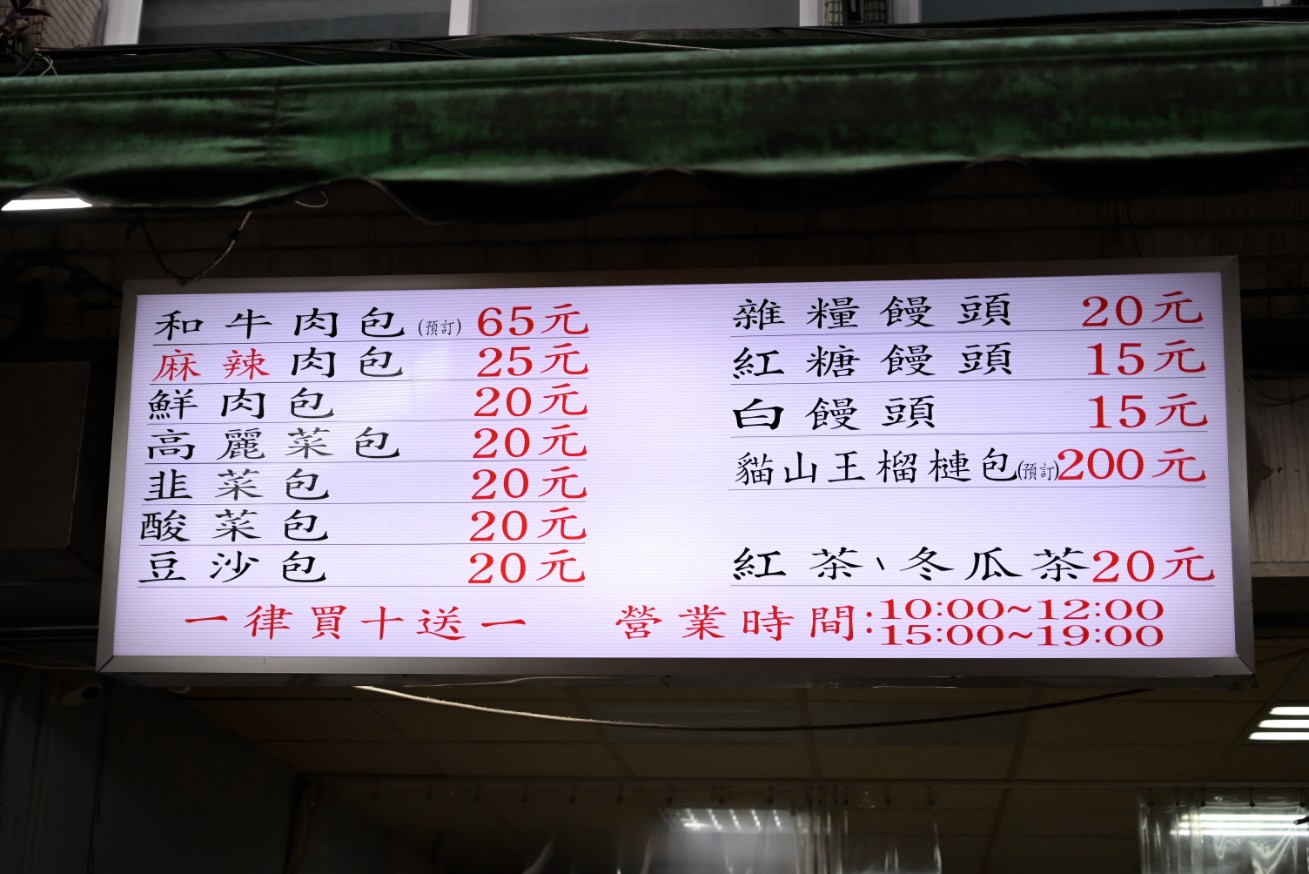 和牛肉包(預訂) 65元
麻辣肉包 25元
鮮肉包 20元
高麗菜包 20元
韭菜包 20元
酸菜包 20元
豆沙包 20元
雜糧饅頭 20元
紅糖饅頭 15元
白饅頭 15元
貓山王榴槤包(預訂)200元
紅茶、冬瓜茶20元
一律買十送一
營業時間:10:00~12:00
15:00~19:00